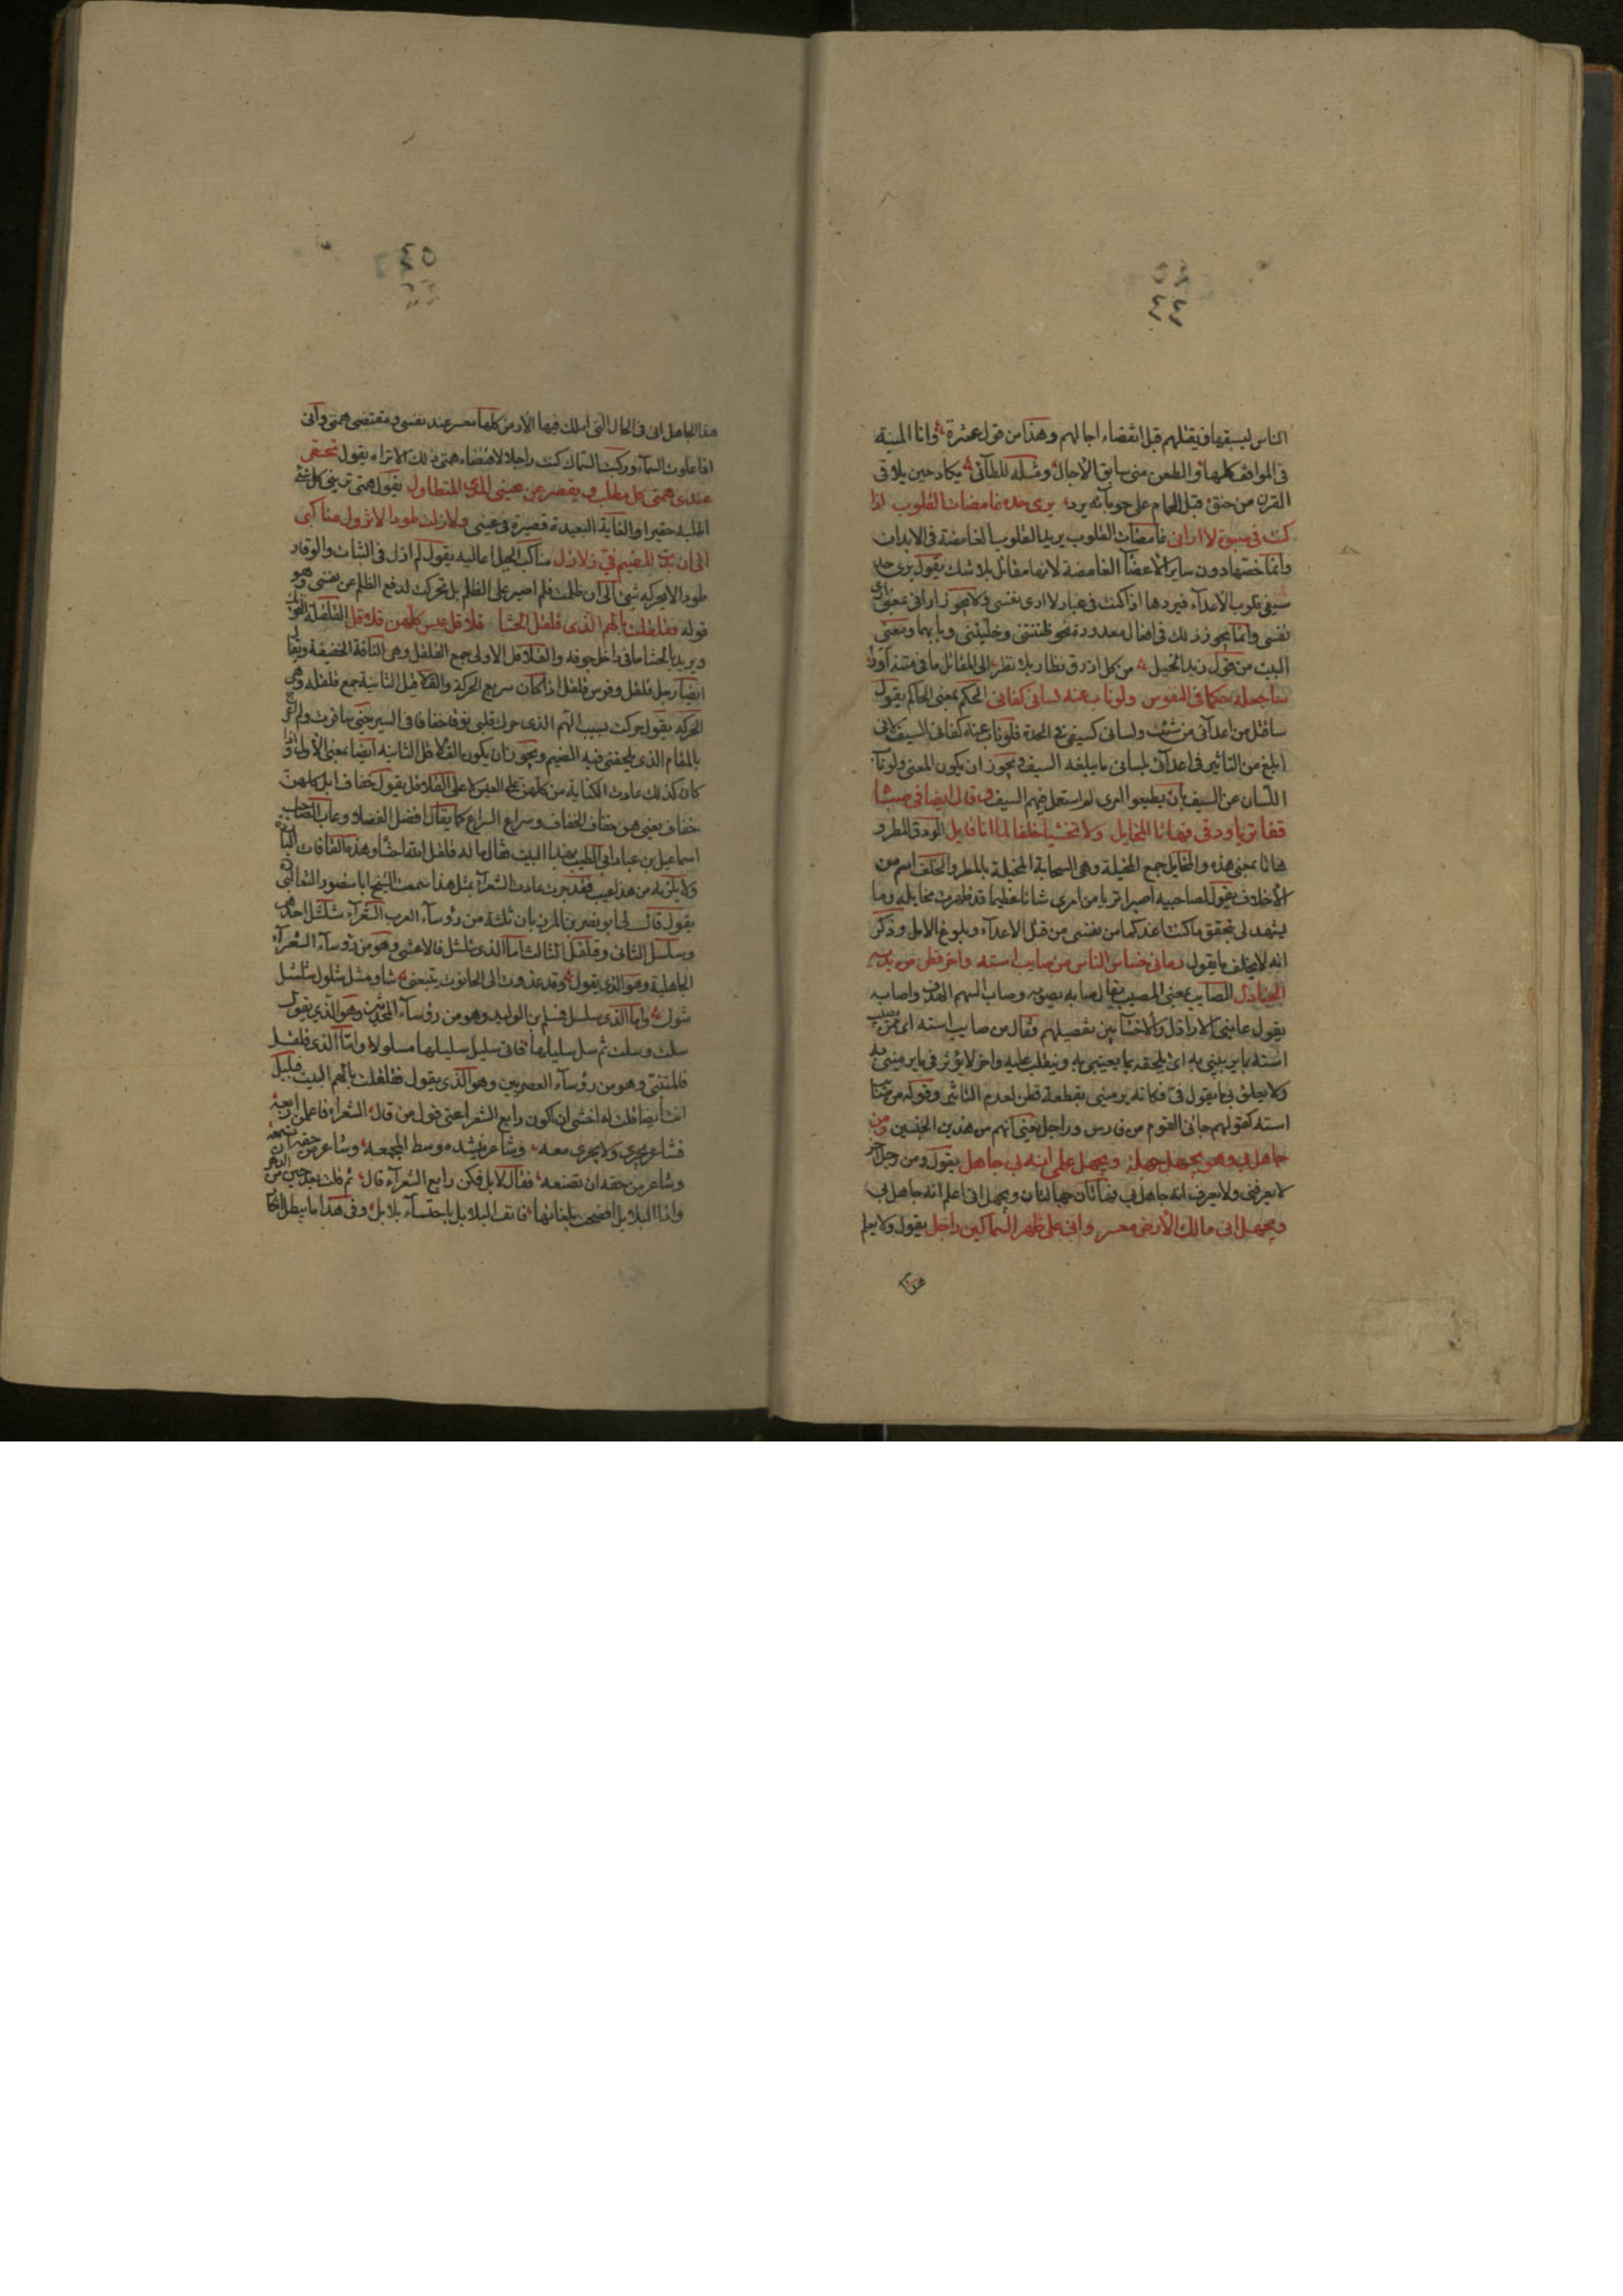 ٤٤
الناس ليسبقها فيقتلهم قبل انقضاء اجالهم وهذا من قول عنترة وانا المنية
فى المواقف كلها والطعن منى سابق الآجال ومثله للطآئى يكاد حين يلاقى
القرن من حنق قبل الحمام على حوبآئه يرد يرى حده غامضات القلوب اذا
كنت فى هبوة لا ارانى غامضات القلوب يريد القلوب الغامضة فى الابدان
وانما خصها دون ساير الاعضآ الغامضة لانها مقاتل بلا شك يقول يرى حد
سيفى قلوب الأعدآء فيردها اذا كنت فى غبار لا ارى نفسى ولا يجوز ارانى بمعنى ارى
نفسى وانما يجوز ذلك فى افعال معدودة نحو ظننتنى وخلتنى وبابهما ومعنى
البيت من قول زيد الخيل من كل ازرق نظار بلا نظر الى المقاتل ما فى متنه اود
ساجعله حكما فى النفوس ولو ناب عنه لسانى كفانى الحكم بمعنى الحاكم يقول
ساقتل من اعدآئى من شئت ولسانى كسيفى فى الحدة فلو ناب عنه كفانى السيف لانى
ابلغ من التاثير فى اعدآئى بلسانى ما يبلغه السيف ويجوز ان يكون المعنى ولو ناب
اللسان عن السيف بان يطيعوا امرى لم استعمل فيهم السيف وقال ايضا فى صباه
قفا تريا ودقى فهاتا المخايل ولا تخشيا خلفا لما انا قايل الودق المطر و
هاتا بمعنى هذه والمخايل جمع المخيلة وهى السحابة المخيلة بالمطر والخلف اسم من
الأخلاف يقول لصاحبيه اصبرا تريا من امرى شانا عظيما قد ظهرت مخايله وما
يشهد لى بتحقق ما كنت اعدكما من نفسى من قتل الأعدآء وبلوغ الامل وذكر
انه لا يخلف ما يقول رمانى خساس الناس من صايب استه واخر قطن من يديه
الجنادل الصايب بمعنى المصيب يقال صابه يصوبه وصاب السهم الهدف واصابه
يقول عابنى الاراذل والاخسآ بين بتفصيلهم فقال من صايب استه اى ممن
استه ما يرمينى به اى يلحقه ما يعيبنى به وينقلب عليه واخر لا يؤثر فى ما يرمينى به
ولا يعلق بى ما يقول فى فكانه يرمينى بقطعة قطن لعدم التاثير وقوله من صايب
استه كقولهم جانى القوم من فارس وراجل يعنى انهم من هذين الجنسين ومن
جاهل بى وهو يجهل جهله ويجهل علمى انه بى جاهل يقول ومن رجل اخر
لا يعرفنى ولا يعرف انه جاهل بى فهاتان جهالتان ويجهل انى اعلم انه جاهل بى
ويجهل انى مالك الأرض معسر وانى على ظهر السماكين راجل يقول ولا يعلم
هذا
٤٥
هذا الجاهل انى فى الحال التى املك فيها الأرض كلها معسر عند نفسى ومقتضى همتى وانى
اذا علوت السمآء وركبت السماك كنت راجلا لاقتضاء همتى ما فوق ذلك يقول تحقر
عندى همتى كل مطلب ويقصر عن عينى المدى المتطاول يقول همتى ترينى كل شئ
اطلبه حقيرا والغاية البعيدة قصيرة فى عينى وما زلت طودا لا تزول مناكبى
الى ان بدت للضيم فى زلازل مناكب الجبل اعاليه يقول لم ازل فى الثبات والوقار
طودا لا يحركه شئ الى ان ظلمت فلم اصبر على الظلم بل تحركت لدفع الظلم عن نفسى وهو
قوله فقلقلت بالهم الذى قلقل الحشا قلاقل عيس كلهن قلاقل القلقلة التحريك
ويريد بالحشا ما فى داخل جوفه والقلاقل الاولى جمع القلقل وهى الناقة الخفيفة ويقال
ايضا رجل قلقل وفرس قلقل اذا كان سريع الحركة والقلاقل الثانية جمع قلقلة وهى
الحركة يقول حركت بسبب الهم الذى حرك قلبى نوقا خفافا فى السير يعنى سافرت ولم اعرج
بالمقام الذى يلحقنى فيه الضيم ويجوز ان يكون بالقلاقل الثانية ايضا بمعنى الأولى واذا
كان كذلك عادت الكناية من كلهن على العيس لا على القلاقل يقول خفاف ابل كلهن
خفاف يعنى هن خفاف الخفاف وسراع السراع كما يقال افضل الفضلاء وعاب الصاحب
اسماعيل بن عباد ابا الطيب بهذا البيت فقال ما له قلقل الله احشاه وهذه القافات الباردة
ولا يلزمه من هذا عيب فقد جرت عادة الشعرآء بمثل هذا سمعت الشيخ ابا منصور الثعالبى
يقول قال لى ابو نصر بن المرزبان ثلثة من رؤسآء العرب الشعرآء شلشل احدهم
وسلسل الثانى وقلقل الثالث اما الذى شلشل فالاعشى وهو من رؤسآء الشعرآء
الجاهلية وهو الذى يقول وقد غدوت الى الحانوت يتبعنى شاو مشل شلول شلشل
شول واما الذى سلسل فمسلم بن الوليد وهو من رؤسآء المحدثين وهو الذى يقول
سلت وسلت ثم سل سليلها فاتى سليل سليلها مسلولا واما الذى قلقل
فالمتنبى وهو من رؤسآء العصريين وهو الذى يقول فقلقلت بالهم البيت فبلبل
انت ايضا فقلت له اخشى ان اكون رابع الشعرآء اعنى قول من قال الشعرآء فاعلمن اربعة
فشاعر يجرى ولا يجرى معه وشاعر ينشد وسط المجمعة وشاعر من حقه ان تسمعه
وشاعر من حقه ان تصفعه فقال لا بل فكن رابع الشعرآء قال ثم قلت بعد حين من الدهر
واذا البلابل افصحت بلغاتها فانف البلابل باحتسآء بلابل وفى هذا ما يبطل انكار